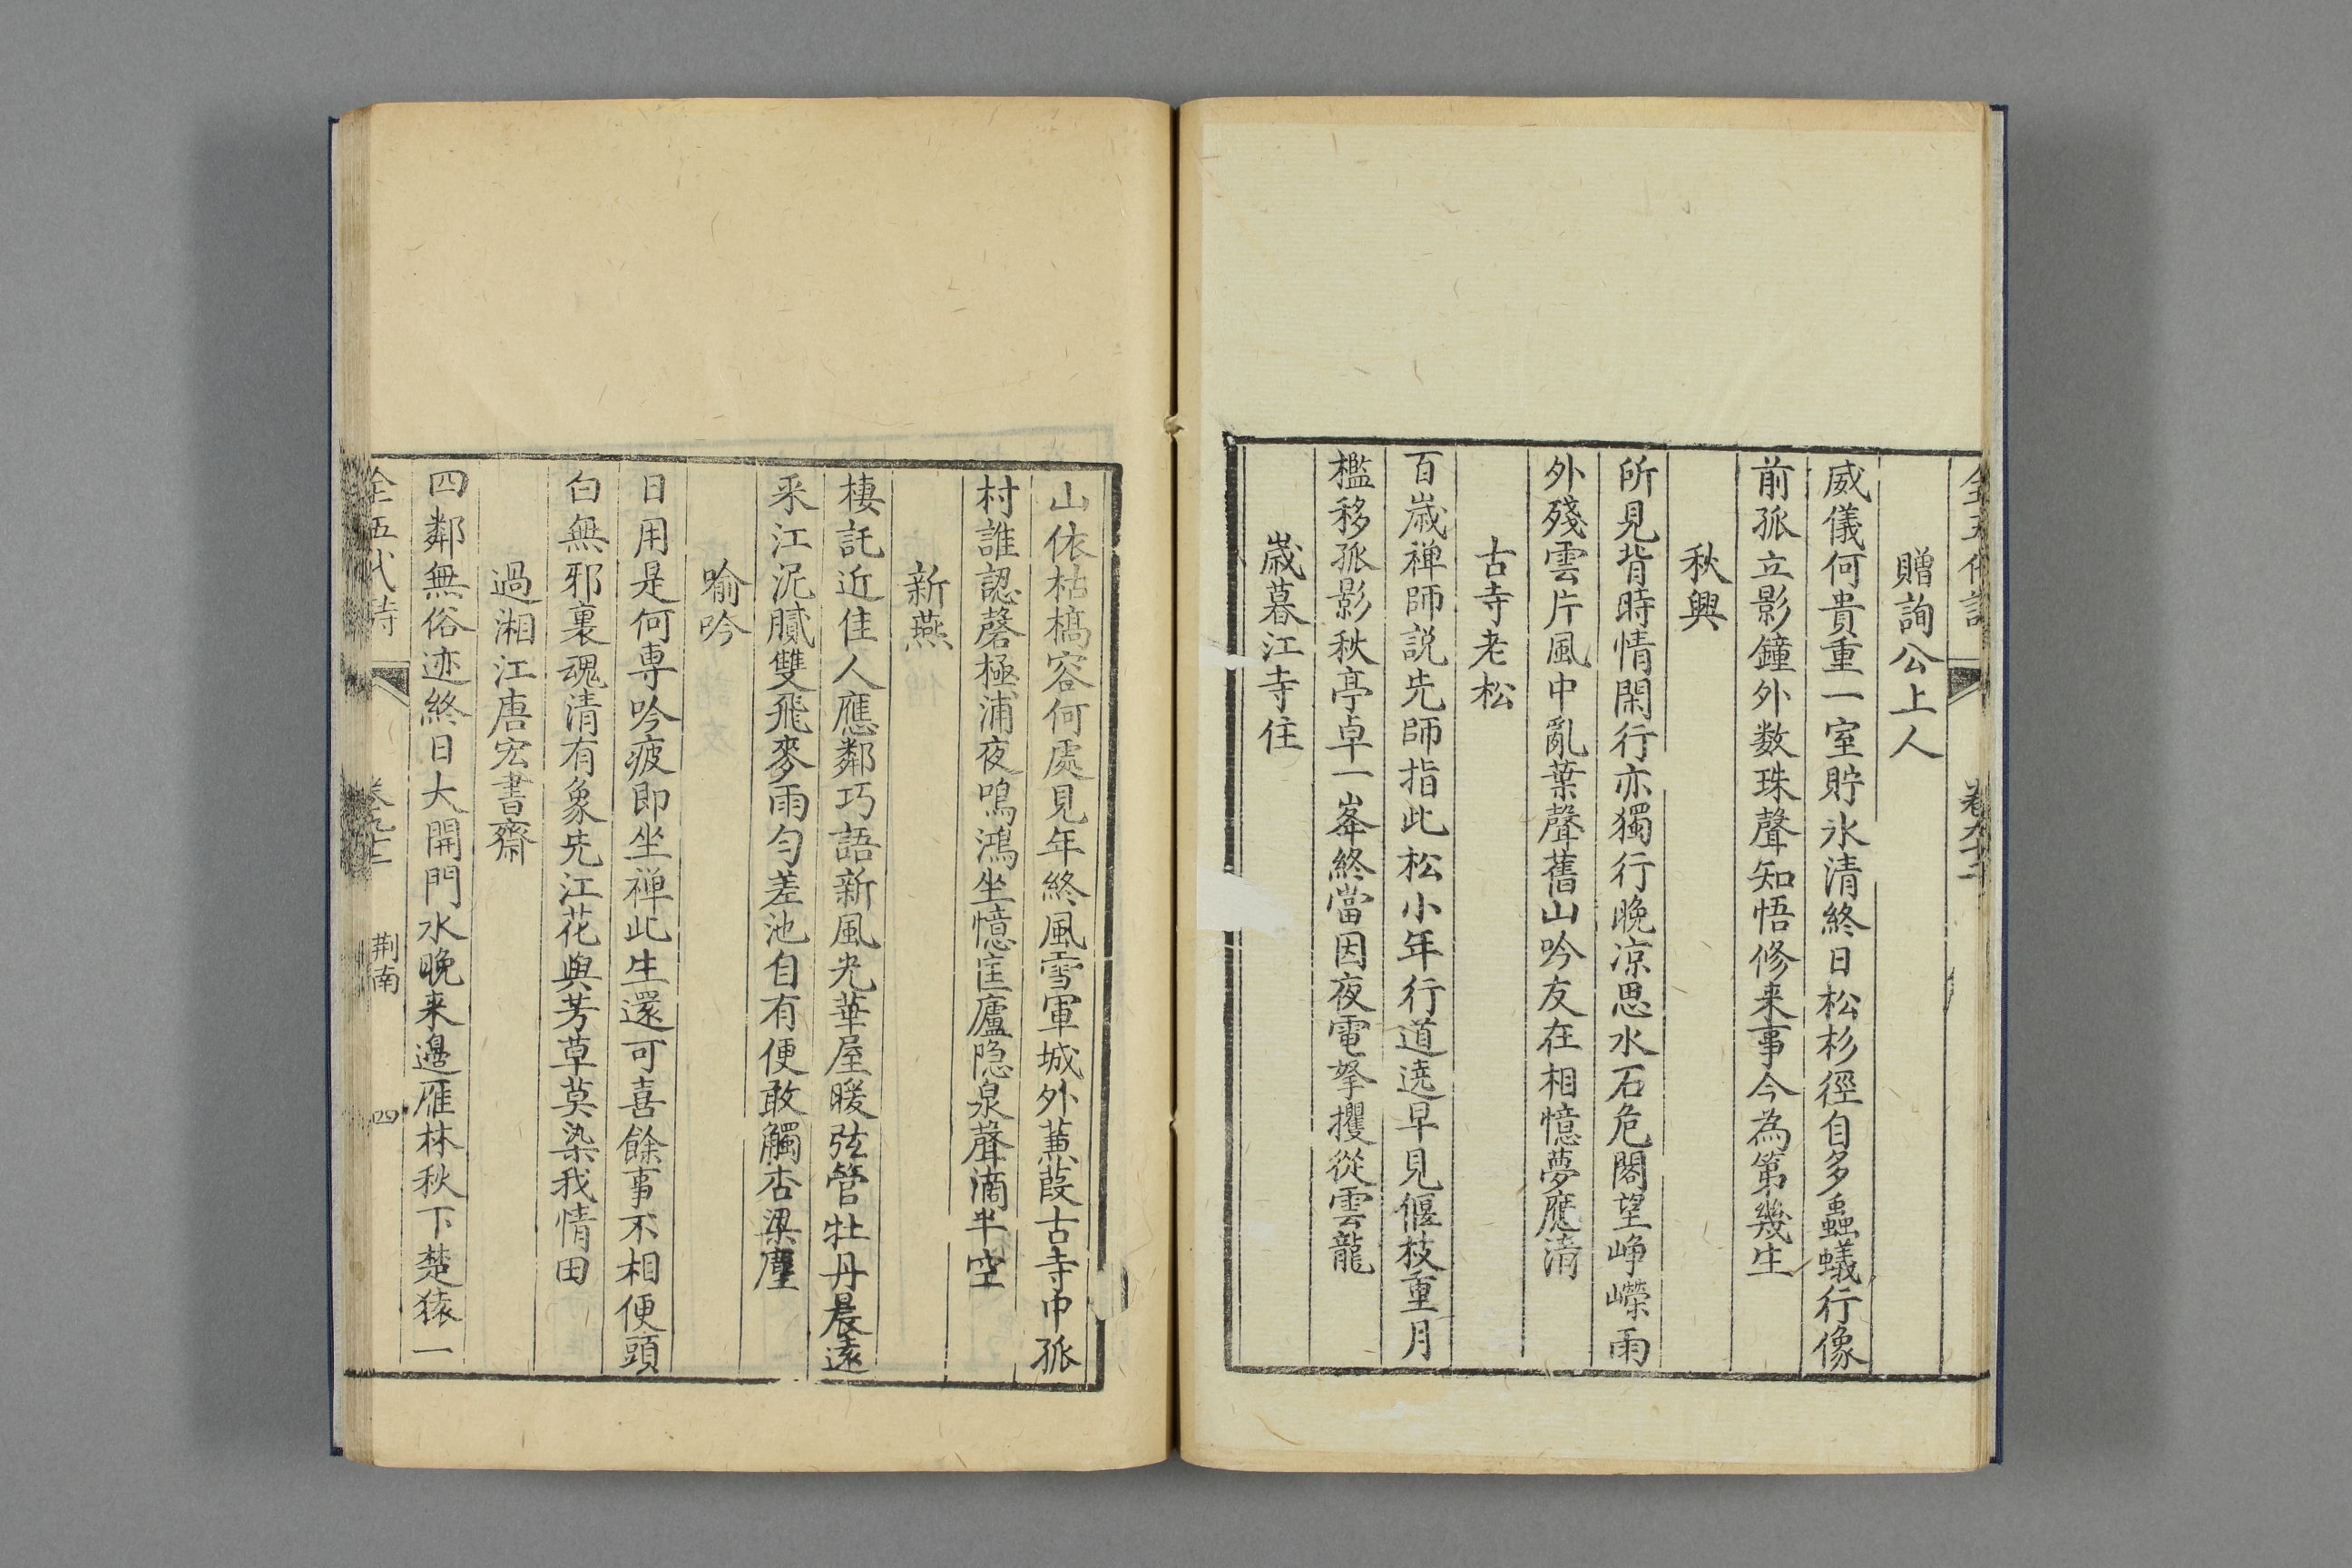 全五代詩 卷九十二
贈詢公上人
威儀何貴重一室貯氷清終日松杉徑自多蟲蟻行像
前孤立影鐘外数珠聲知悟修来事今為第幾生
秋興
所見背時情閑行亦獨行晚凉思水石危閣望崢嶸雨
外殘雲片風中亂葉聲舊山吟友在相憶夢應清
古寺老松
百歲禅師説先師指此松小年行道遶早見偃枝重月
檻移孤影秋亭卓一峯終當因夜電拏攫從雲龍
歲暮江寺住
山依枯槁容何處見年終風雪軍城外蒹葭古寺中孤
村誰認磬極浦夜鳴鴻坐憶匡廬隐泉聲滴半空
新燕
棲託近佳人應鄰巧語新風光華屋暖弦管牡丹晨遠
采江泥膩雙飛麥雨匀差池自有便敢觸杏梁塵
喻吟
日用是何専吟疲即坐禅此生還可喜餘事不相便頭
白無邪裏魂清有象先江花與芳草莫染我情田
過湘江唐宏書齋
四鄰無俗迹終日大開門水晚来邊雁林秋下楚猿一
全五代詩 卷九十二 荆南 四